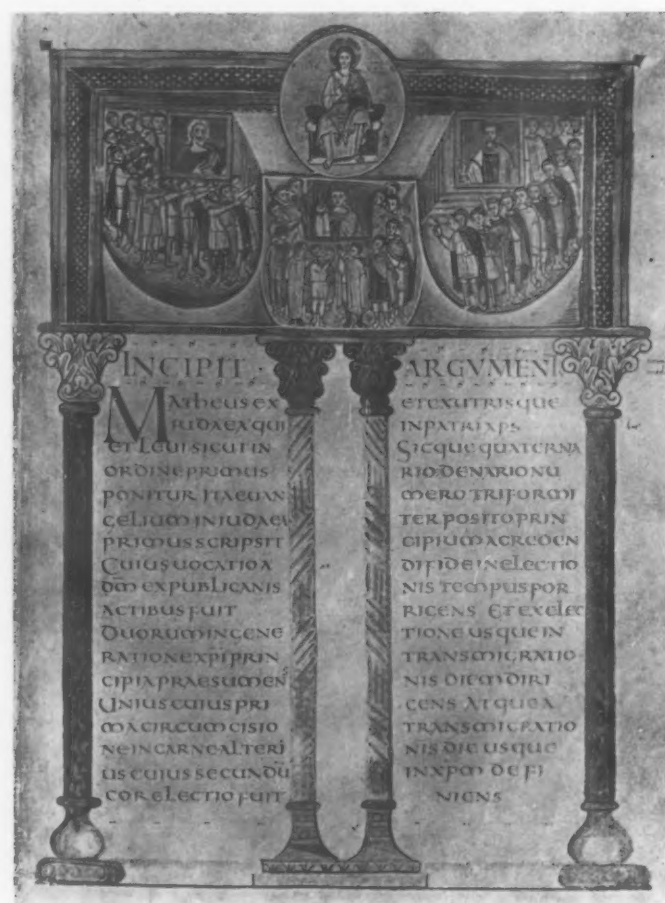 INCIPIT · ARGVMENT
MATHEUS EX
IUDAEA QUI
ET LEUI SICUT IN
ORDINE PRIMUS
PONITUR ITA EUAN
GELIUM IN IUDAEA
PRIMUS SCRIPSIT
CUIUS UOCATIO A
DM EX PUBLICANIS
ACTIBUS FUIT
DUORUM IN GENE
RATIONE XPI PRIN
CIPIA PRAESUMEN
UNIUS CUIUS PRI
MA CIRCUMCISIO
NE IN CARNE ALTERI
US CUIUS SECUNDU
COR ELECTIO FUIT
ET EX UTRISQUE
IN PATRI XPS
SICQUE QUATERNA
RIO DENARIO NU
MERO TRIFORMI
TER POSITO PRIN
CIPIUM A CREDEN
DI FIDE IN ELECTIO
NIS TEMPUS POR
RIGENS ET EX ELEC
TIONE USQUE IN
TRANSMIGRATIO
NIS DIEM DIRI
GENS ATQUE A
TRANSMIGRATIO
NIS DIE USQUE
IN XPM DEFI
NIENS